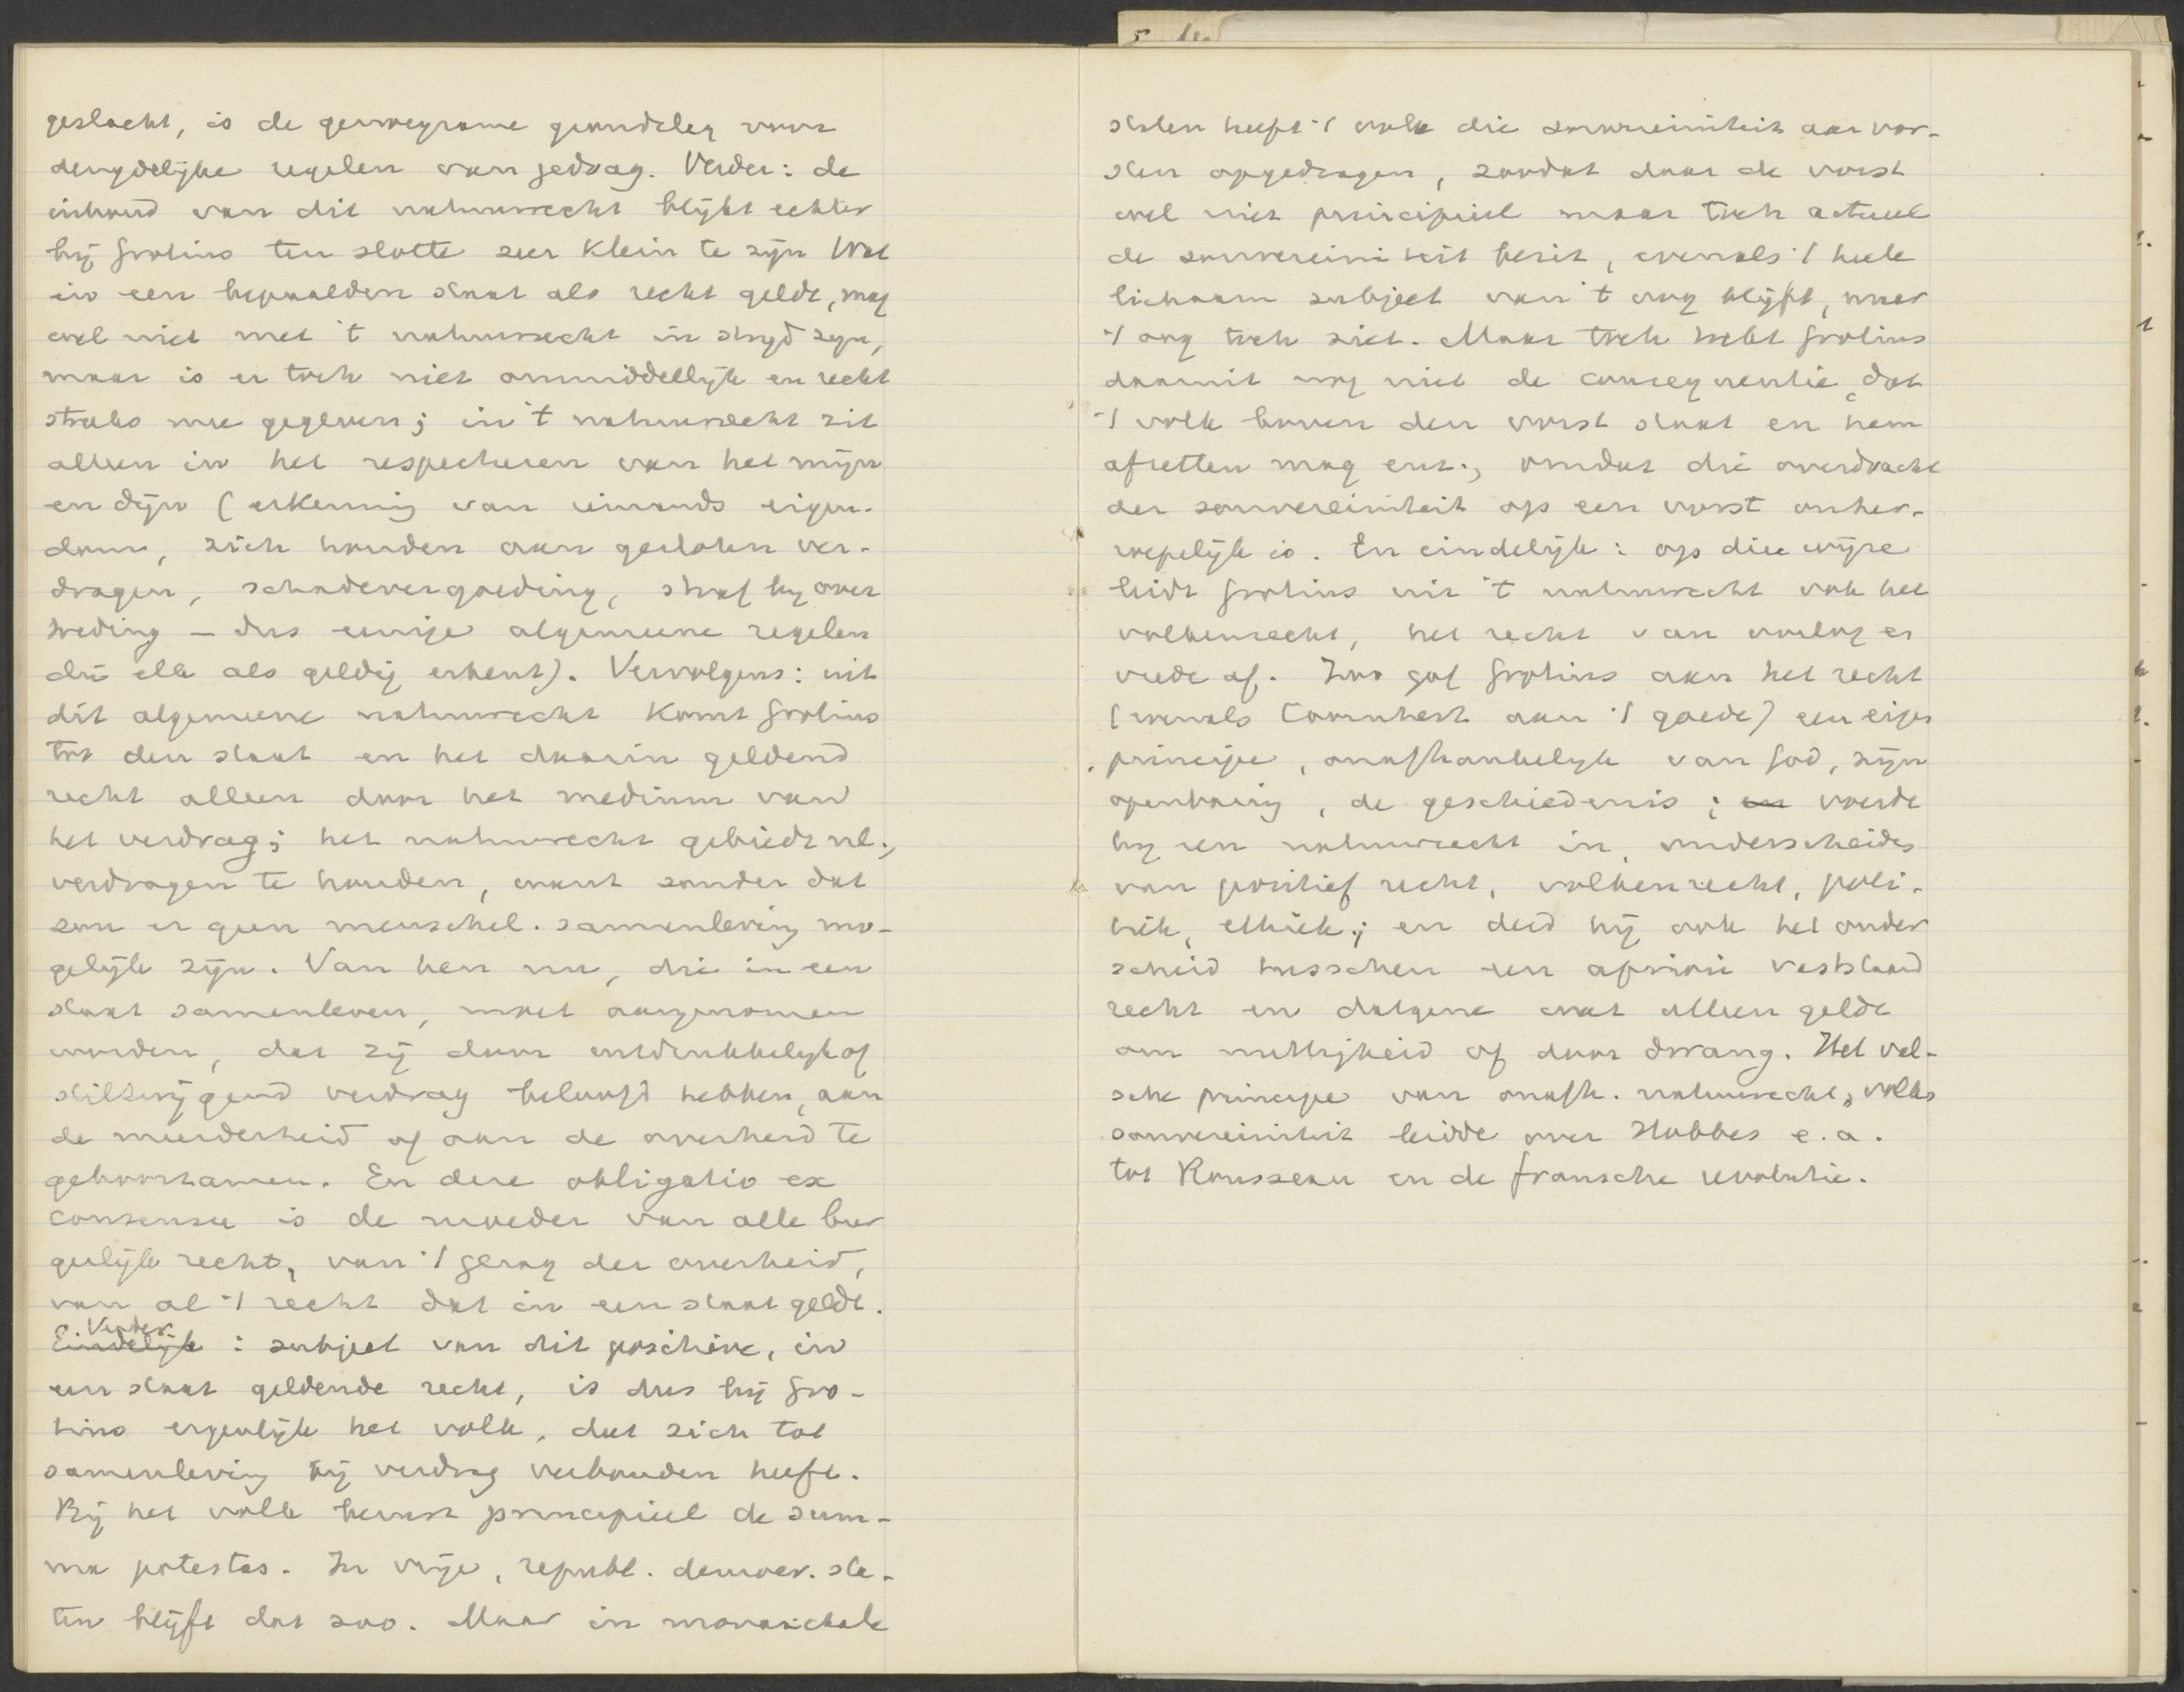 geslacht, is de genoegzame grondslag voor
deugdelijke regelen van gedrag. Verder: de
inhoud van dit natuurrecht blijkt echter
bij Grotius ten slotte zeer klein te zijn Wat
in een bepaalden staat als recht geldt, mag
wel niet met 't natuurrecht in strijd zijn,
maar is er toch niet onmiddellijk en recht
streeks mee gegeven; in 't natuurrecht zit
alleen in het respecteren van het mijn
en dijn (erkenning van iemands eigen-
dom, zich houden aan gesloten ver-
dragen, schadevergoeding, straf bij over
treding – dus eenige algemeene regelen
die elk als geldig erkent). Vervolgens: uit
dit algemeene natuurrecht komt Grotius
tot den staat en het daarin geldend
recht alleen door het medium van
het verdrag; het natuurrecht gebiedt nl.,
verdragen te houden, want zonder dat
zou er geen menschel. samenleving mo-
gelijk zijn. Van hen nu, die in een
staat samenleven, moet aangenomen
worden, dat zij door uitdrukkelijk of
stilzwijgend verdrag beloofd hebben, aan
de meerderheid of aan de overheid te
gehoorzamen. En deze obligatio ex
consensu is de moeder van alle bur
gerlijk recht, van 't gezag der overheid,
van al 't recht dat in een staat geldt.
Verder
Eindelijk : subject van dit positieve, in
een staat geldende recht, is dus bij Gro-
tius eigenlijk het volk, dat zich tot
samenleving bij verdrag verbonden heeft.
Bij het volk berust principieel de sum-
ma potestas. In vrije, republ. democr. sta-
ten blijft dat zoo. Maar in monarchale
staten heeft 't volk die souvereiniteit aan vor-
sten opgedragen, zoodat daar de vorst
wel niet principieel maar toch actueel
de souvereiniteit bezit, evenals 't heele
lichaam subject van 't oog blijft, maar
't oog toch ziet. Maar toch trekt Grotius
daaruit nog niet de consequentie, dat
't volk boven den vorst staat en hem
afzetten mag enz., omdat die overdracht
der souvereiniteit op een vorst onher-
roepelijk is. En eindelijk: op die wijze
leidt Grotius uit 't natuurrecht ook het
volkenrecht, het recht van oorlog en
vrede af. Zoo gaf Grotius aan het recht
(evenals Coornhert aan 't goede) een eigen
principe, onafhankelijk van God, zijn
openbaring, de geschiedenis; en voerde
hij een natuurrecht in, onderscheiden
van positief recht, volkenrecht, poli-
tiek, ethiek; en deed hij ook het onder
scheid tusschen een apriori vaststaand
recht en datgene wat alleen geldt
om nuttigheid of door dwang. Het val-
sche principe van onafh. natuurrecht, volks
souvereiniteit leidde over Hobbes e.a.
tot Rousseau en de fransche revolutie.